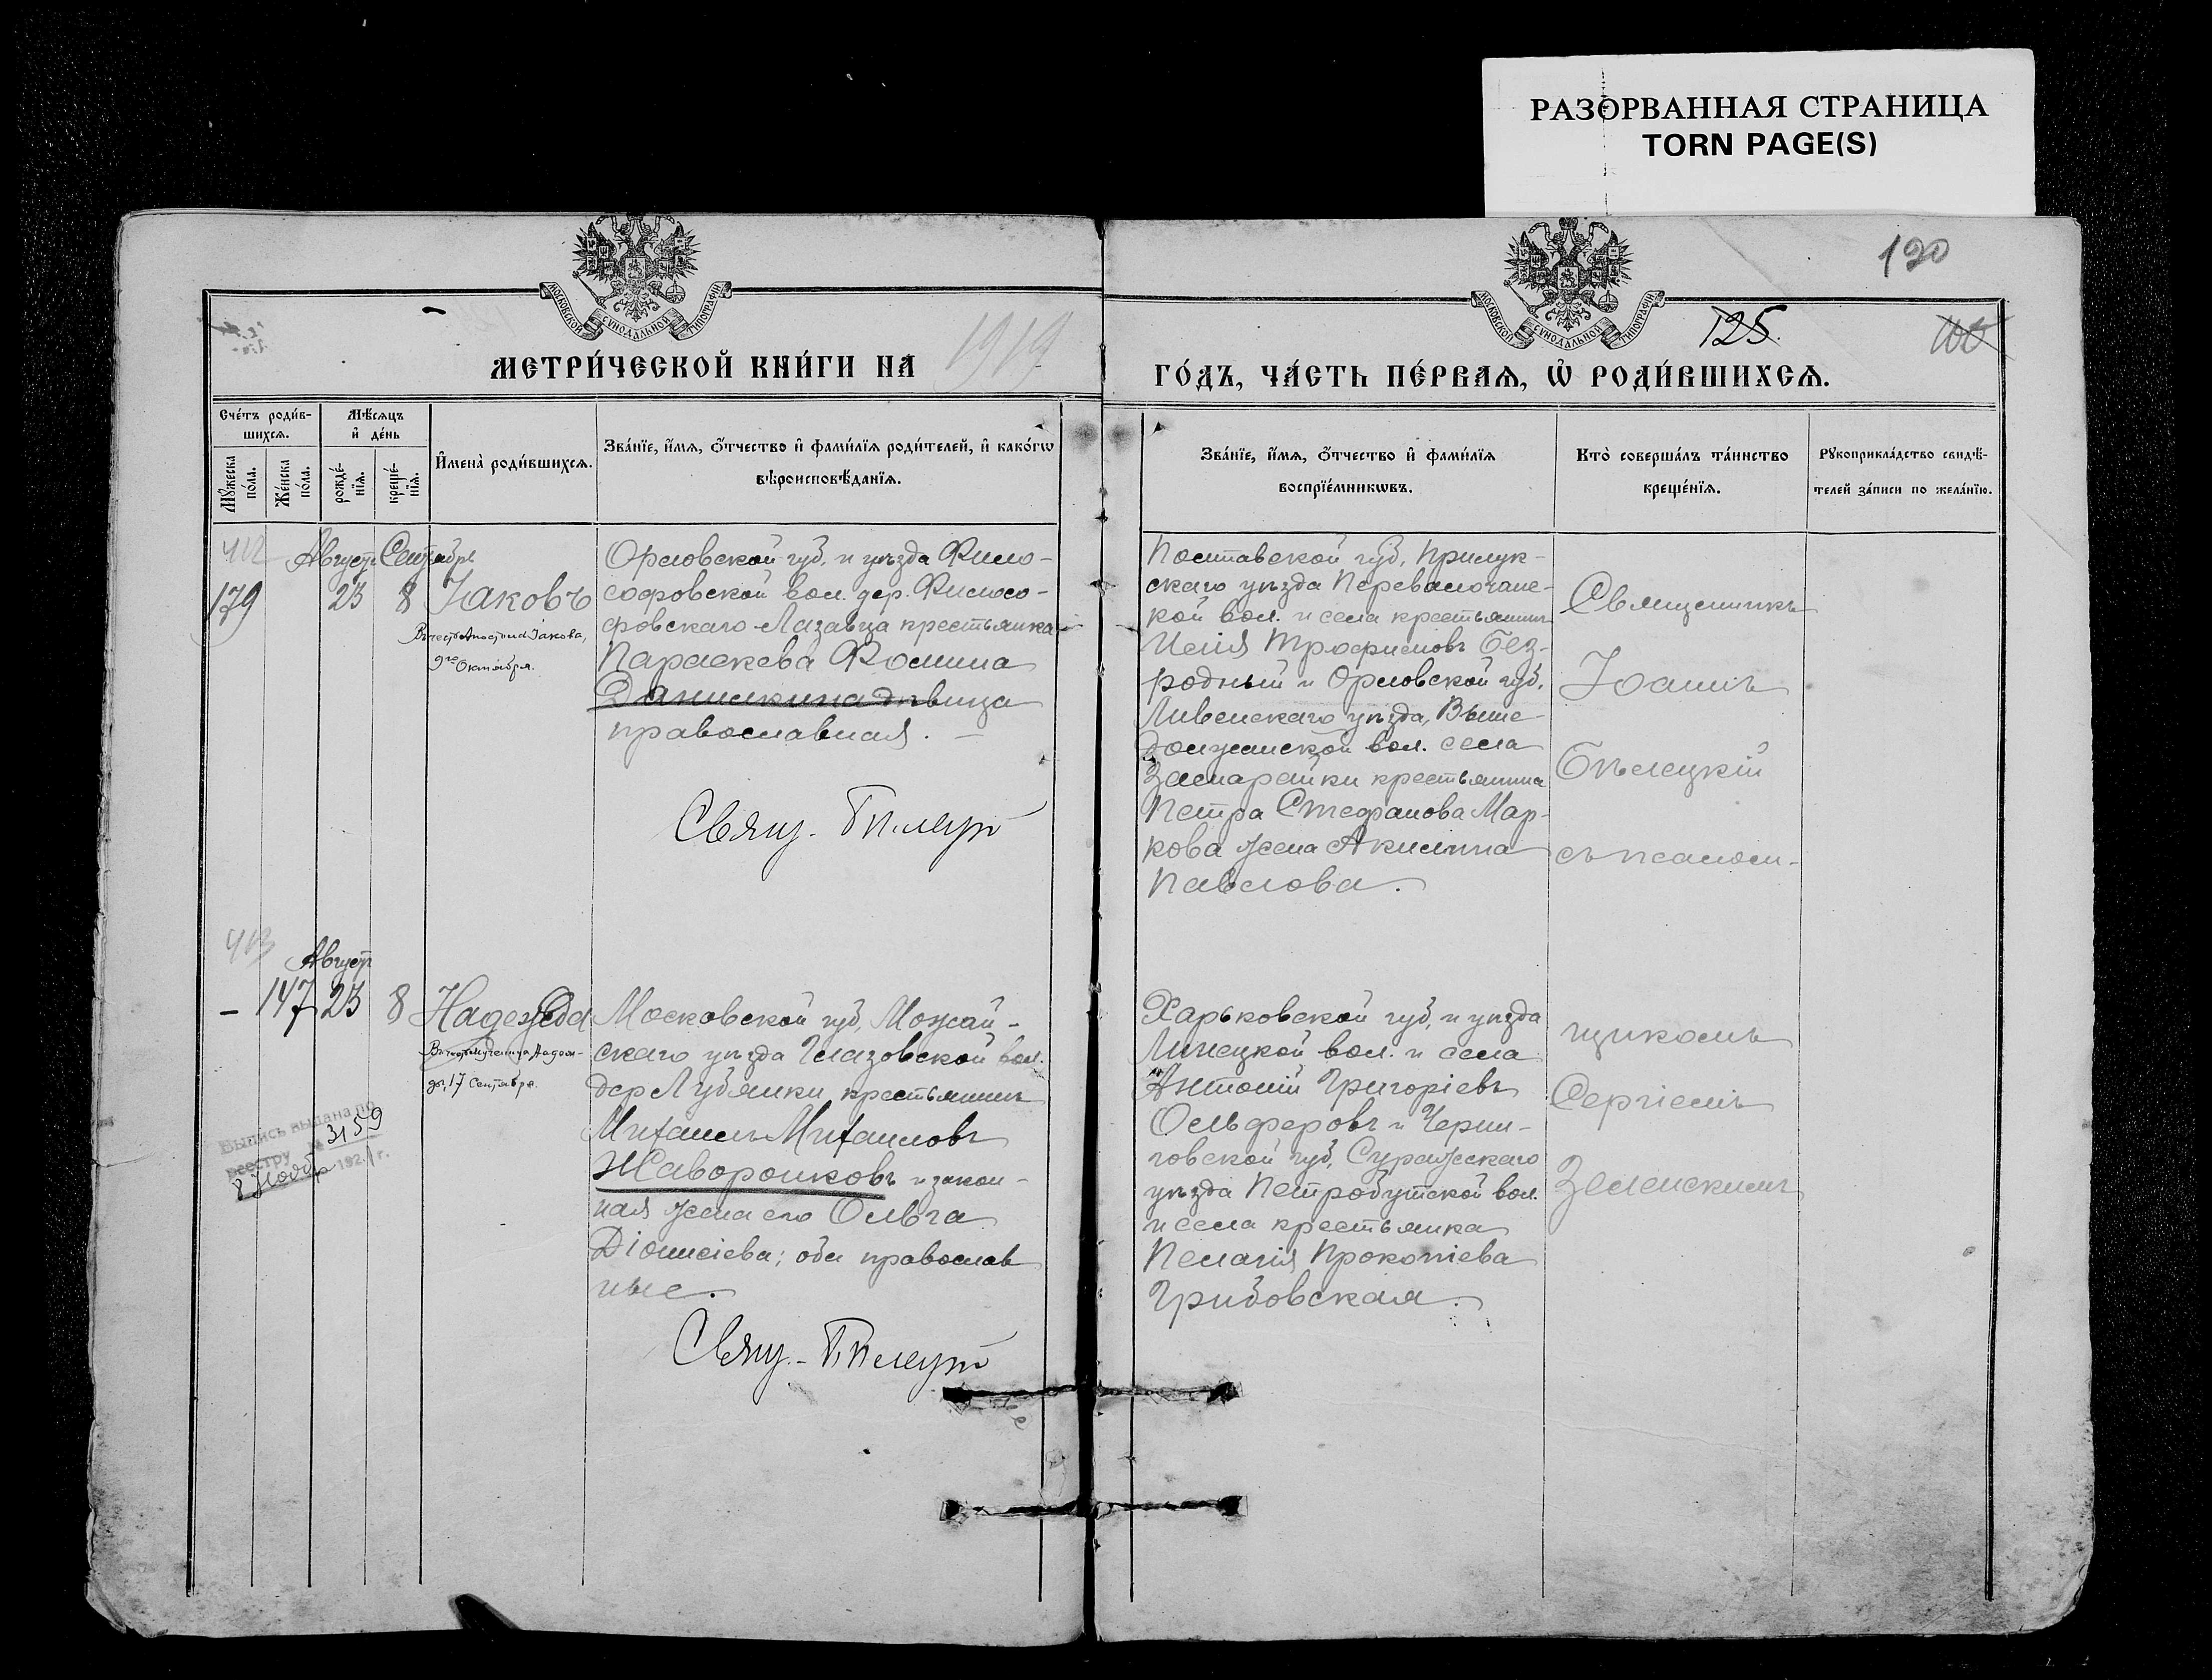 РАЗОРВАННАЯ СТРАНИЦА
TORN PAGE(S)
190
МОСКОВСКОЙ СУНОДАЛЬНОЙ ТИПОГРАФІИ
МОСКОВСКОЙ СУНОДАЛЬНОЙ ТИПОГРАФІИ
125.
МЕТРИ́ЧЕСКОЙ КНИ́ГИ НА 1919
ГО́ДЪ, ЧА́СТЬ ПЕ́РВАѦ, Ѡ҆ РОДИ́ВШИХСѦ.
Сче́тъ роди́в-
шихсѧ.
Мꙋ́жеска по́ла.
Же́нска по́ла.
Мѣ́сѧцъ
и҆ де́нь
рожде́-
нїѧ.
креще́-
нїѧ.
И҆мена̀ роди́вшихсѧ.
Зва́нїе, и҆́мѧ, ѻ҆́тчество и҆ фами́лїѧ роди́телей, и҆ како́гѡ
вѣроисповѣ́данїѧ.
Зва́нїе, и҆́мѧ, ѻ҆́тчество и҆ фами́лїѧ
воспрїе́мникѡвъ.
Кто̀ соверша́лъ та́инство
креще́нїѧ.
Рꙋкоприкла́дство свидѣ́-
телей за́писи по жела́нїю.
412
Августъ Сентябрь
179 23 8 Іаковъ
Въ честь Апостола Іакова,
9го Октября.
Орловской губ. и уѣзда Фило-
софовской вол. дер. Филосо-
фовскаго Лазавца крестьянка
Параскева Фомина
Данилкина дѣвица
православная. —
Свящ. Бѣлецкій
Полтавской губ, Прилук-
скаго уѣзда Переволочан-
кой вол. и села крестьянинъ
Илія Трофимовъ Без-
родный и Орловской губ.
Ливенскаго уѣзда, Выше-
Должанской вол. села
Замарайки крестьянина
Петра Стефанова Мар-
кова жена Акилина
Павлова.
Священникъ
Іоаннъ
Бѣлецкій
съ псалом-
413
Августъ
– 147 23 8 Надежда
Въ честь мученицы Надеж-
ды, 17 Сентября.
Выпись выдана по
реестру № 3159
8 Ноябр 1921 г.
Московской губ, Можай-
скаго уѣзда Глазовской вол.
дер Лубянки крестьянинъ
Михаилъ Михаиловъ
Жаворонковъ и закон-
ная жена его Ольга
Діонисіева; оба православ
ные.
Свящ. Бѣлецкій
Харьковской губ, и уѣзда
Липецкой вол. и села
Антоній Григоріевъ
Ольферовъ и Черни-
говской губ, Суражскаго
уѣзда Петробутской вол.
и села крестьянка
Пелагія Прокопіева
Грибовская.
щикомъ
Сергіемъ
Зеленскимъ